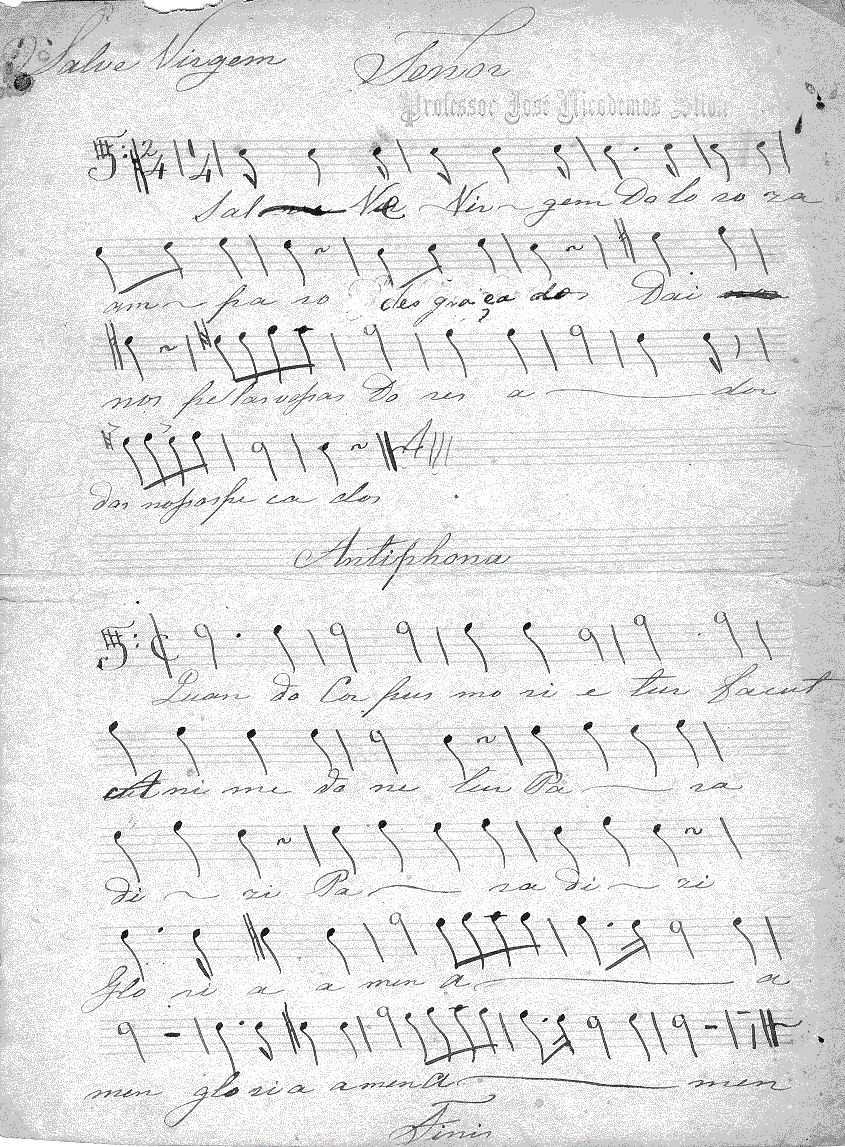 Salve Virgem
Tenor
Professor José Nicodemos Silva
2/4 1/4
Sal Ve Vir gem Do lo ro za
am pa ro des gra ça dos Dai
nos pe las vossas Do res a dor
dos nossos pe ca dos
Antiphona
Quan do Cor pus mo ri e tur facut
A ni me do ne tur Pa ra
di zi Pa ra di zi
Glo ri a a men A a
men glo ri a amen A men
Finis